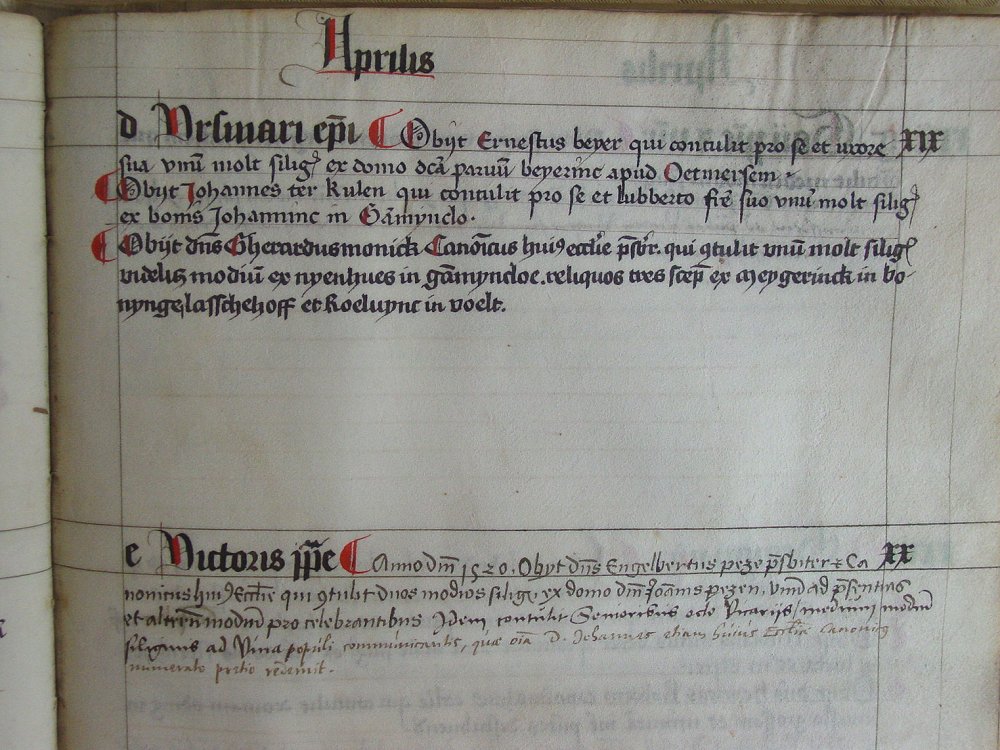 Aprilis
d Vrsmari ep̄i Obijt Ernestus beyer qui contulit pro se et uxore XIX
sua vnū molt silig̃ ex domo dc̄a paruū beyerinc apud Oetmersem
Obijt Johannes ter Kulen qui contulit pro se et lubberto fr̄e suo vnū molt silig̃
ex bonis Johanninc in Gām̄ynclo.
Obijt dn̄s Gherardus monick Canōicus huiꝰ eccl'ie p̄sbr̄. qui ꝯtulit vnū molt silig̃
videlicꝫ modiū ex nyenhues in gām̄yncloe. reliquos tres scep̄ ex meygerinck in bo-
nynge, lasschehoff et Roeluync in voelt.
e Victoris pp̄e Anno dn̄i 1520. Obyt dn̄s Engelbertus peze p̄sbiter & Ca XX
nonicus huiꝰ Eccl̄ie qui ꝯtulit duos modios silig̃ ex domo dn̄i Joān̄is pezen, vnū ad p̄sentias
et alterū modiū pro celebrantibus Idem contulit Senioribus octo Vicarijs / medium modiū
siliginis ad Vina populi communicantis, quae oīa D. Johannes etiam huius Eccl̄ie canonicꝰ
numerato pretio redemit.